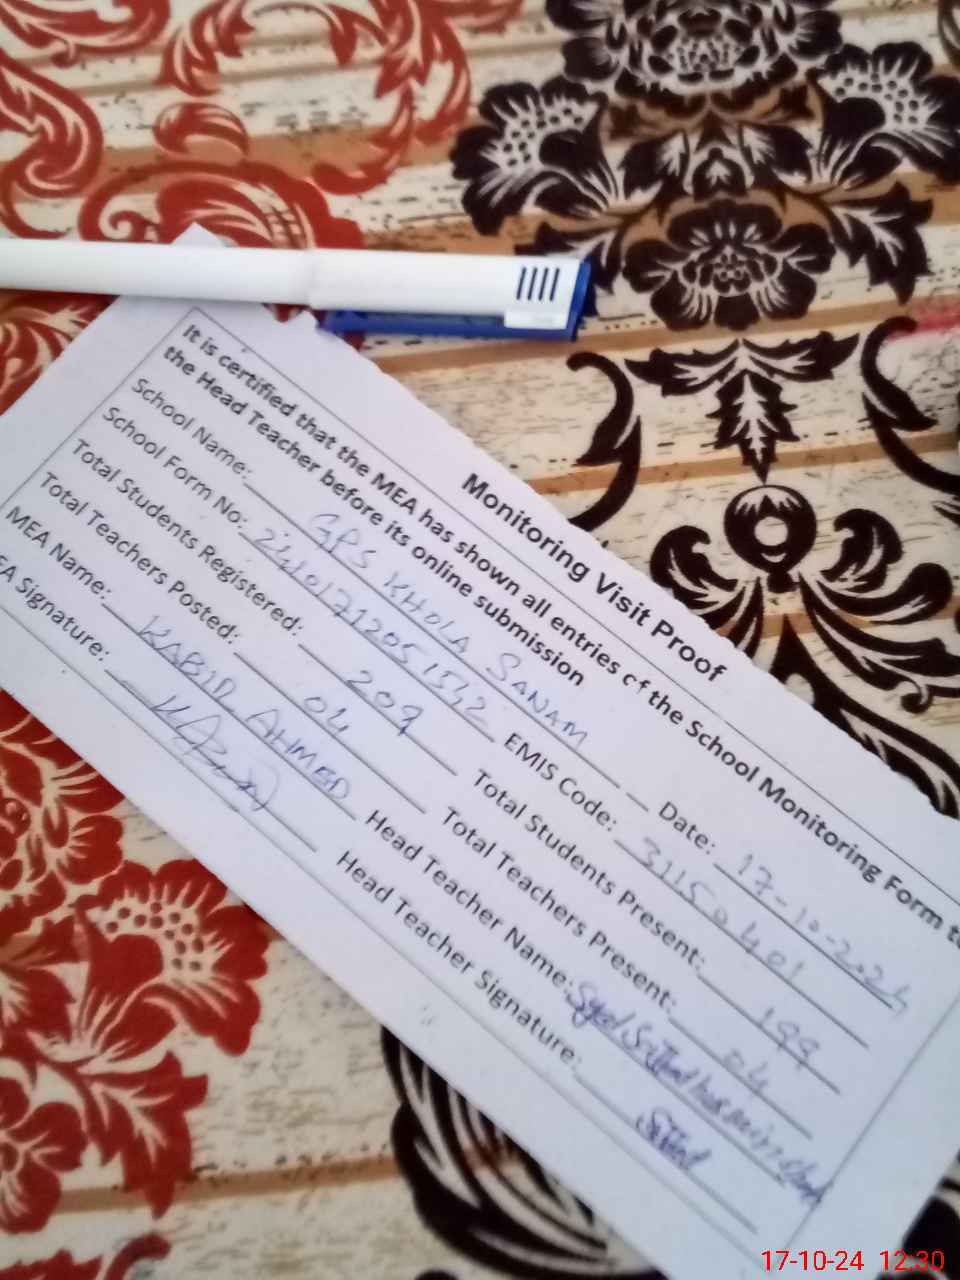 Monitoring Visit Proof
It is certified that the MEA has shown all entries of the School Monitoring Form to
the Head Teacher before its online submission
School Name: GPS KHOLA SANAM Date: 17-10-2024
School Form No: 24101712051542 EMIS Code: 31150401
Total Students Registered: 209 Total Students Present: 199
Total Teachers Posted: 04 Total Teachers Present: 04
MEA Name: KABIR AHMED Head Teacher Name: Syed
EA Signature: Head Teacher Signature:
17-10-24 12:30